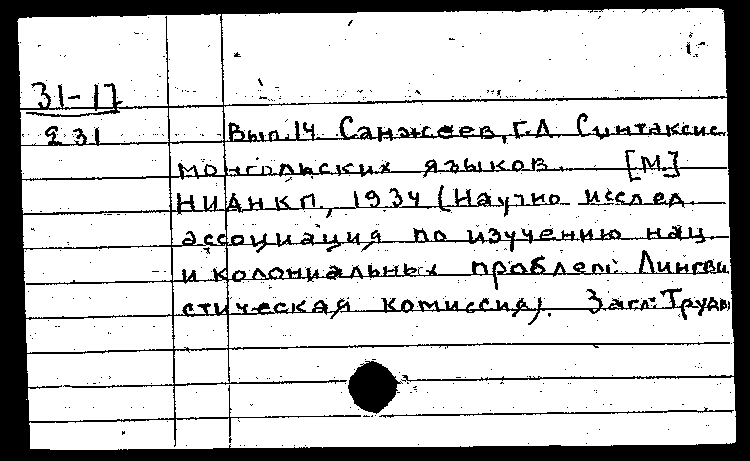 31-17
231
Вып.14 Санжеев, Г.Д. Синтаксис
монгольских языков. [М.]
НИАНКП, 1934 (Научно исслед.
ассоциация по изучению нац.
и колониальных проблем: Лингви
стическая комиссия). Загл: Труды